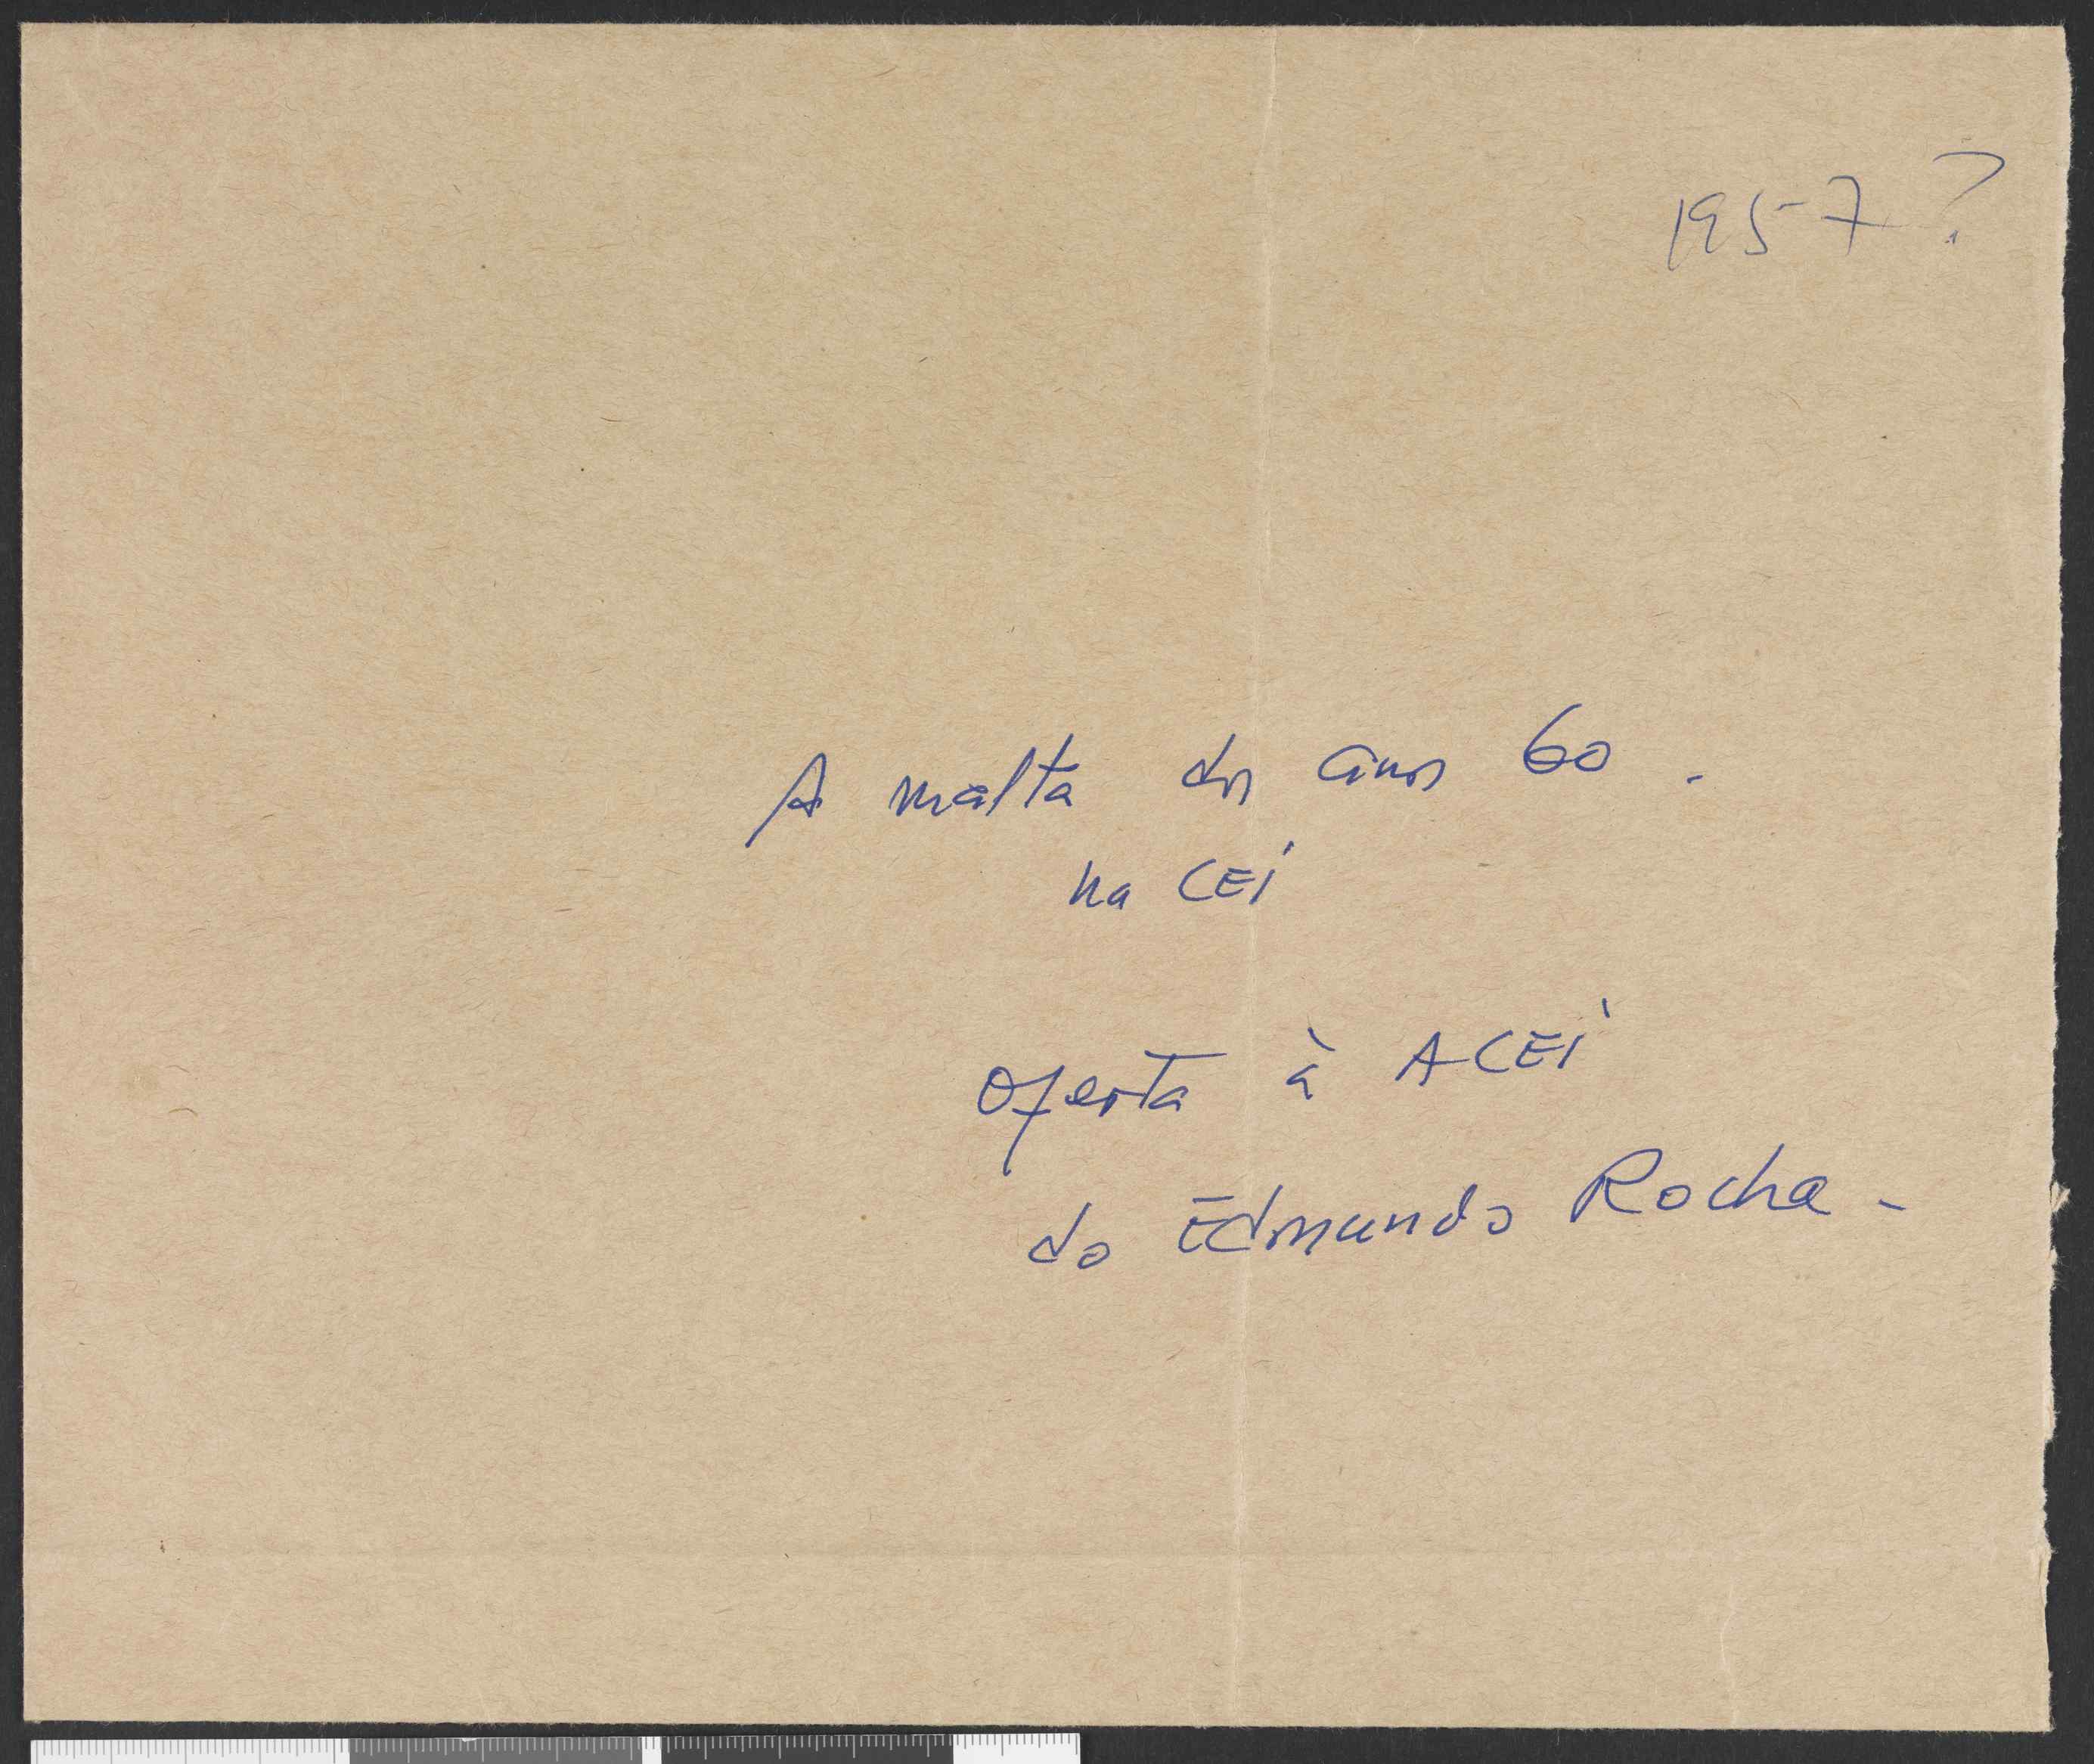 1957?
A malta dos anos 60.
na CEI
oferta à ACEI
do Edmundo Rocha -